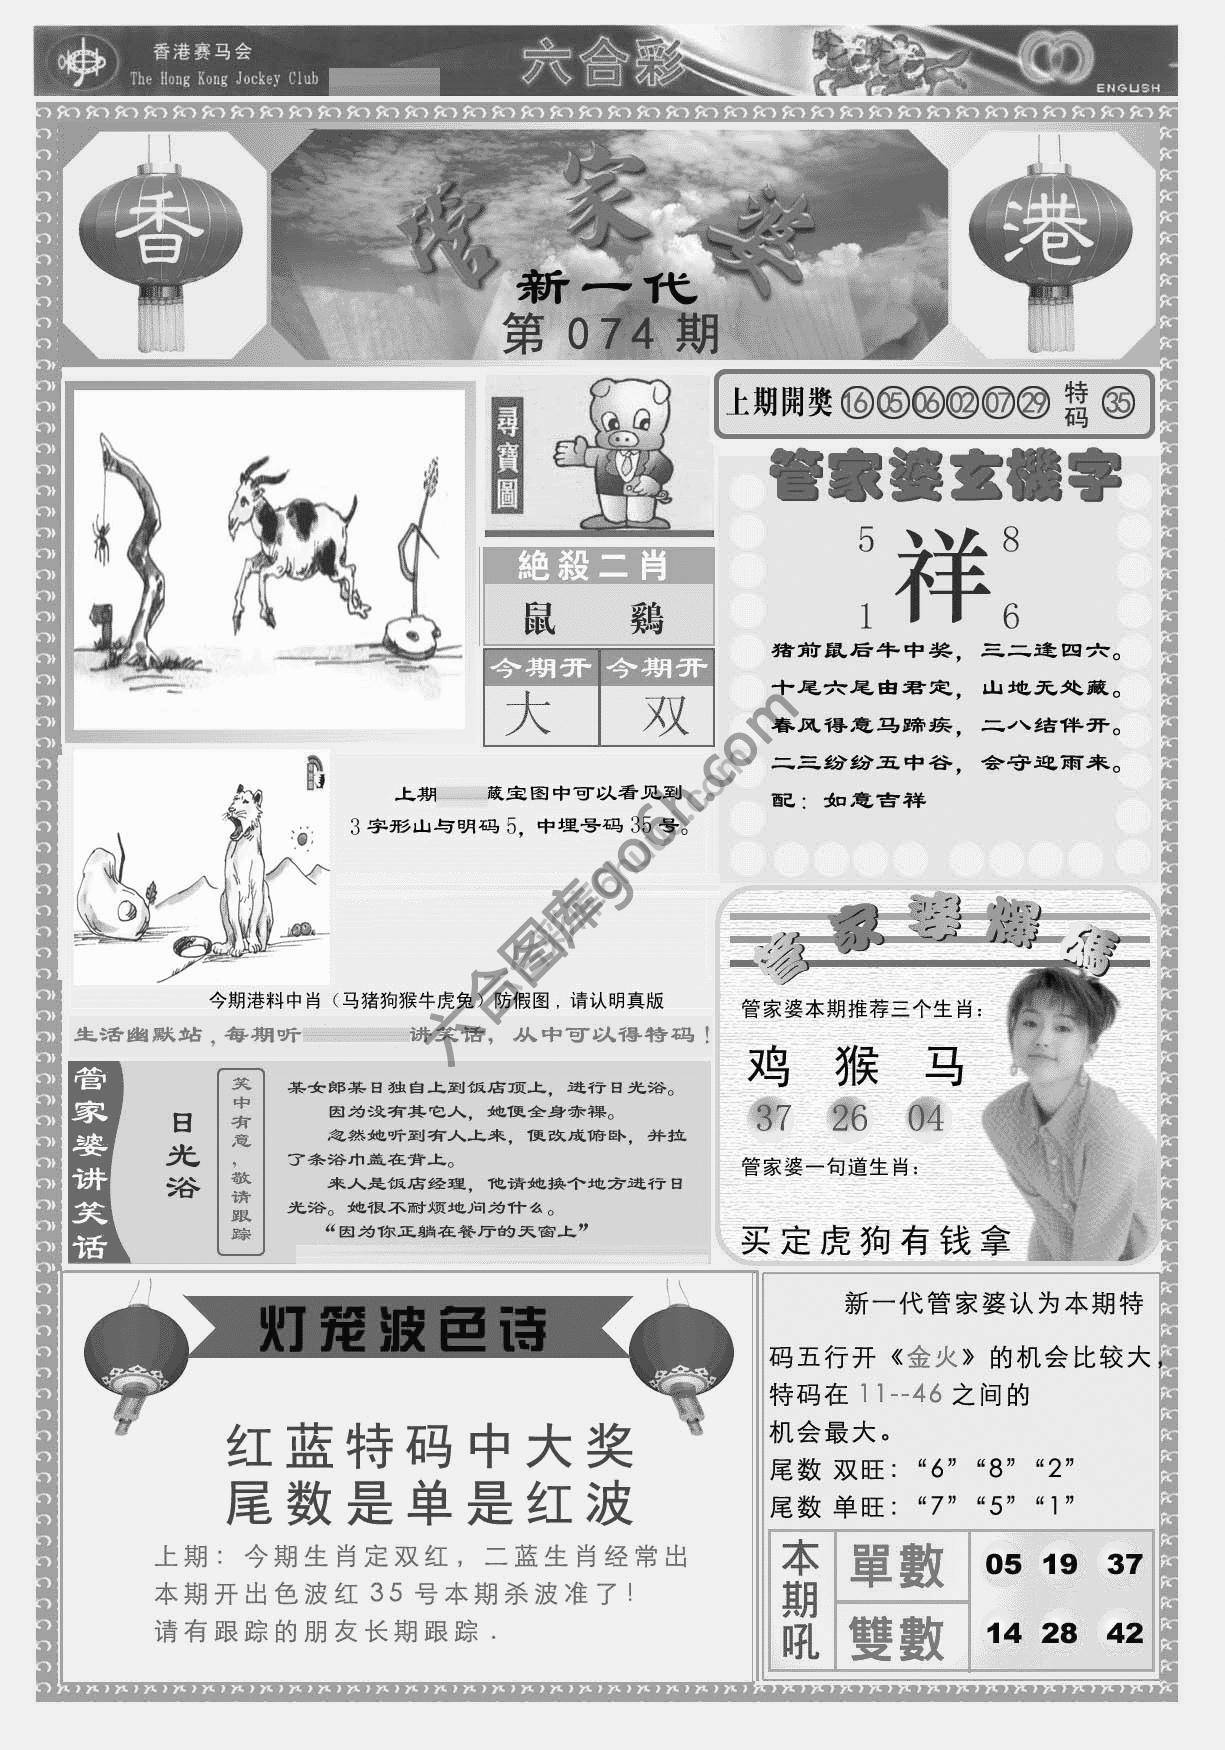 香港赛马会
The Hong Kong Jockey Club
六合彩
ENGLISH
香
管家婆
港
新一代
第 074 期
尋寶圖
上期開獎 16 05 06 02 07 29 特码 35
絶殺二肖
鼠 鷄
今期开 今期开
大 双
管家婆玄機字
5 8
祥
1 6
猪前鼠后牛中奖，三二逢四六。
十尾六尾由君定，山地无处藏。
春风得意马蹄疾，二八结伴开。
二三纷纷五中谷，会守迎雨来。
配：如意吉祥
上期 藏宝图中可以看见到
3 字形山与明码 5，中埋号码 35 号。
今期港料中肖（马猪狗猴牛虎兔）防假图，请认明真版
生活幽默站，每期听 讲笑话，从中可以得特码！
管家婆讲笑话
日光浴
笑中有意，敬请跟踪
某女郎某日独自上到饭店顶上，进行日光浴。
因为没有其它人，她便全身赤裸。
忽然她听到有人上来，便改成俯卧，并拉
了条浴巾盖在背上。
来人是饭店经理，他请她换个地方进行日
光浴。她很不耐烦地问为什么。
“因为你正躺在餐厅的天窗上”
管家婆爆碼
管家婆本期推荐三个生肖：
鸡 猴 马
37 26 04
管家婆一句道生肖：
买定虎狗有钱拿
灯笼波色诗
红蓝特码中大奖
尾数是单是红波
上期：今期生肖定双红，二蓝生肖经常出
本期开出色波红 35 号本期杀波准了！
请有跟踪的朋友长期跟踪．
新一代管家婆认为本期特
码五行开《金火》的机会比较大，
特码在 11--46 之间的
机会最大。
尾数 双旺：“6”“8”“2”
尾数 单旺：“7”“5”“1”
本期吼
單數 05 19 37
雙數 14 28 42
六合图库go6h.com